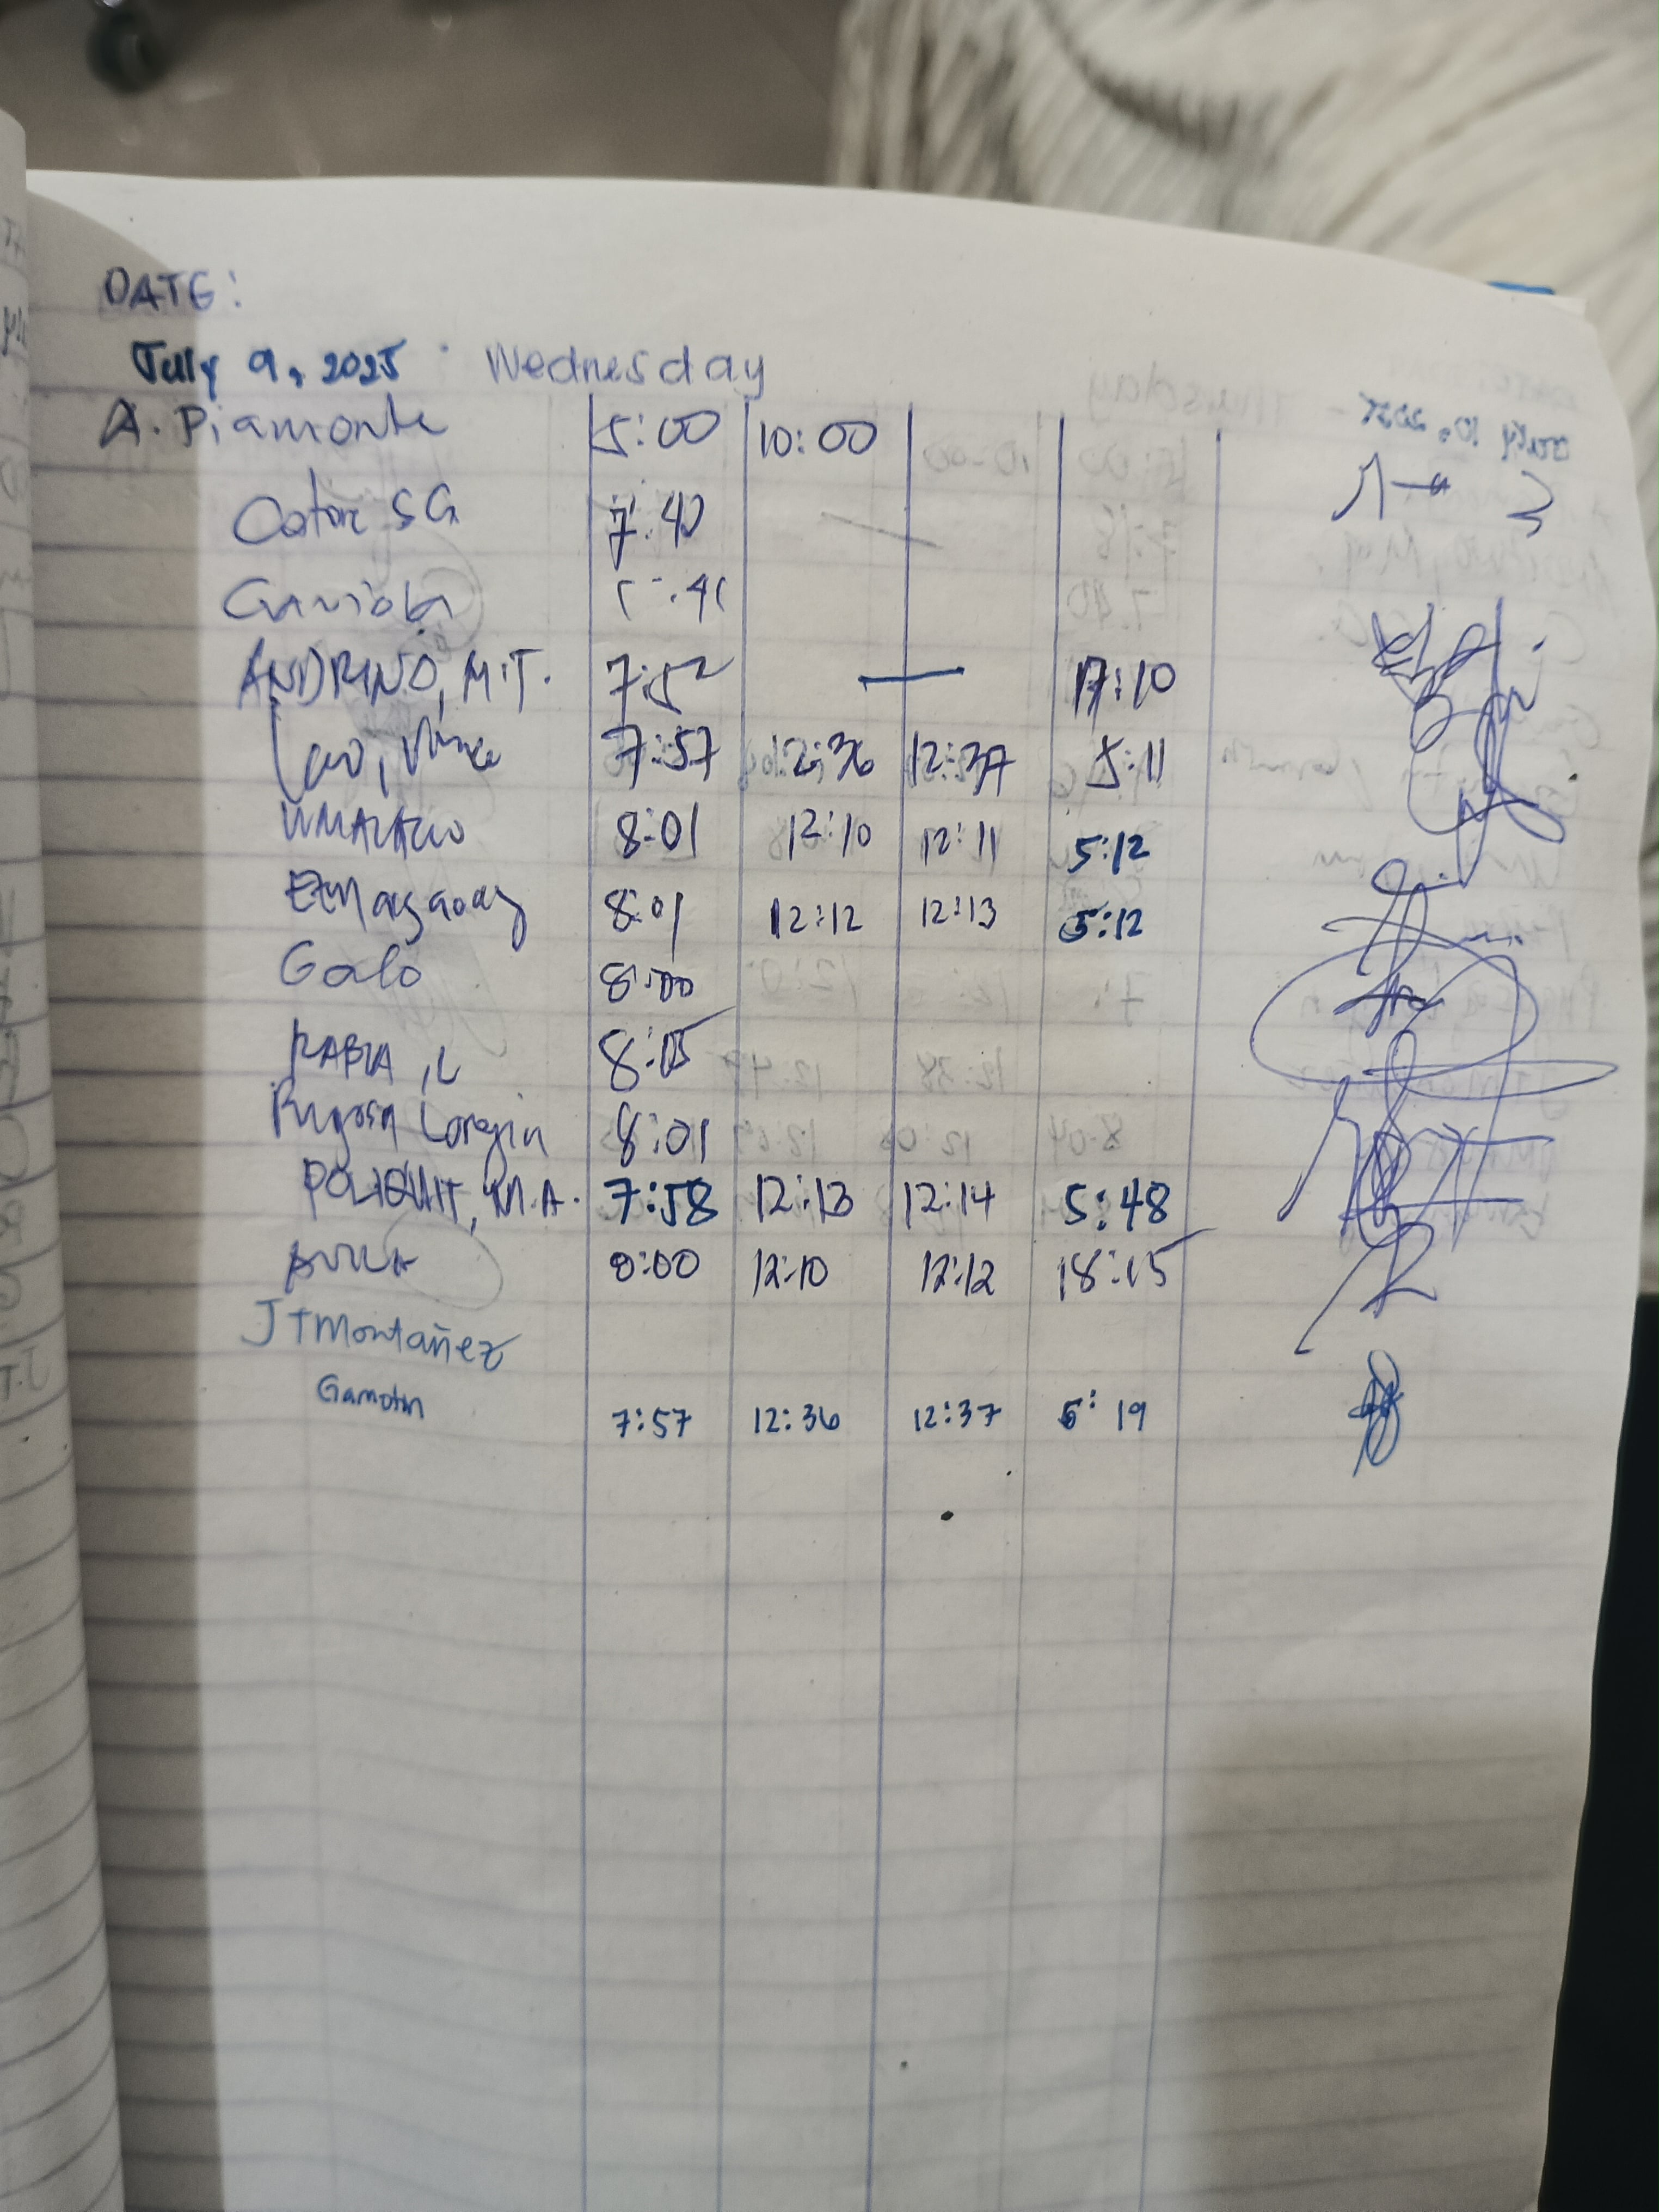 DATE:
July 9, 2025 Wednesday
A. Piamonte 5:00 10:00
SG 7:40
ANDRINO, M.T. 7:52 17:10
Lao, Vince 7:57 12:36 12:37 5:11
8:01 12:10 12:11 5:12
8:01 12:12 12:13 5:12
Galo 8:00
RABIA, L 8:15
Longin 8:01
POLIQUIT, M.A. 7:58 12:13 12:14 5:48
8:00 12:10 12:12 18:15
JTMontañez
Gamotin 7:57 12:36 12:37 5:19